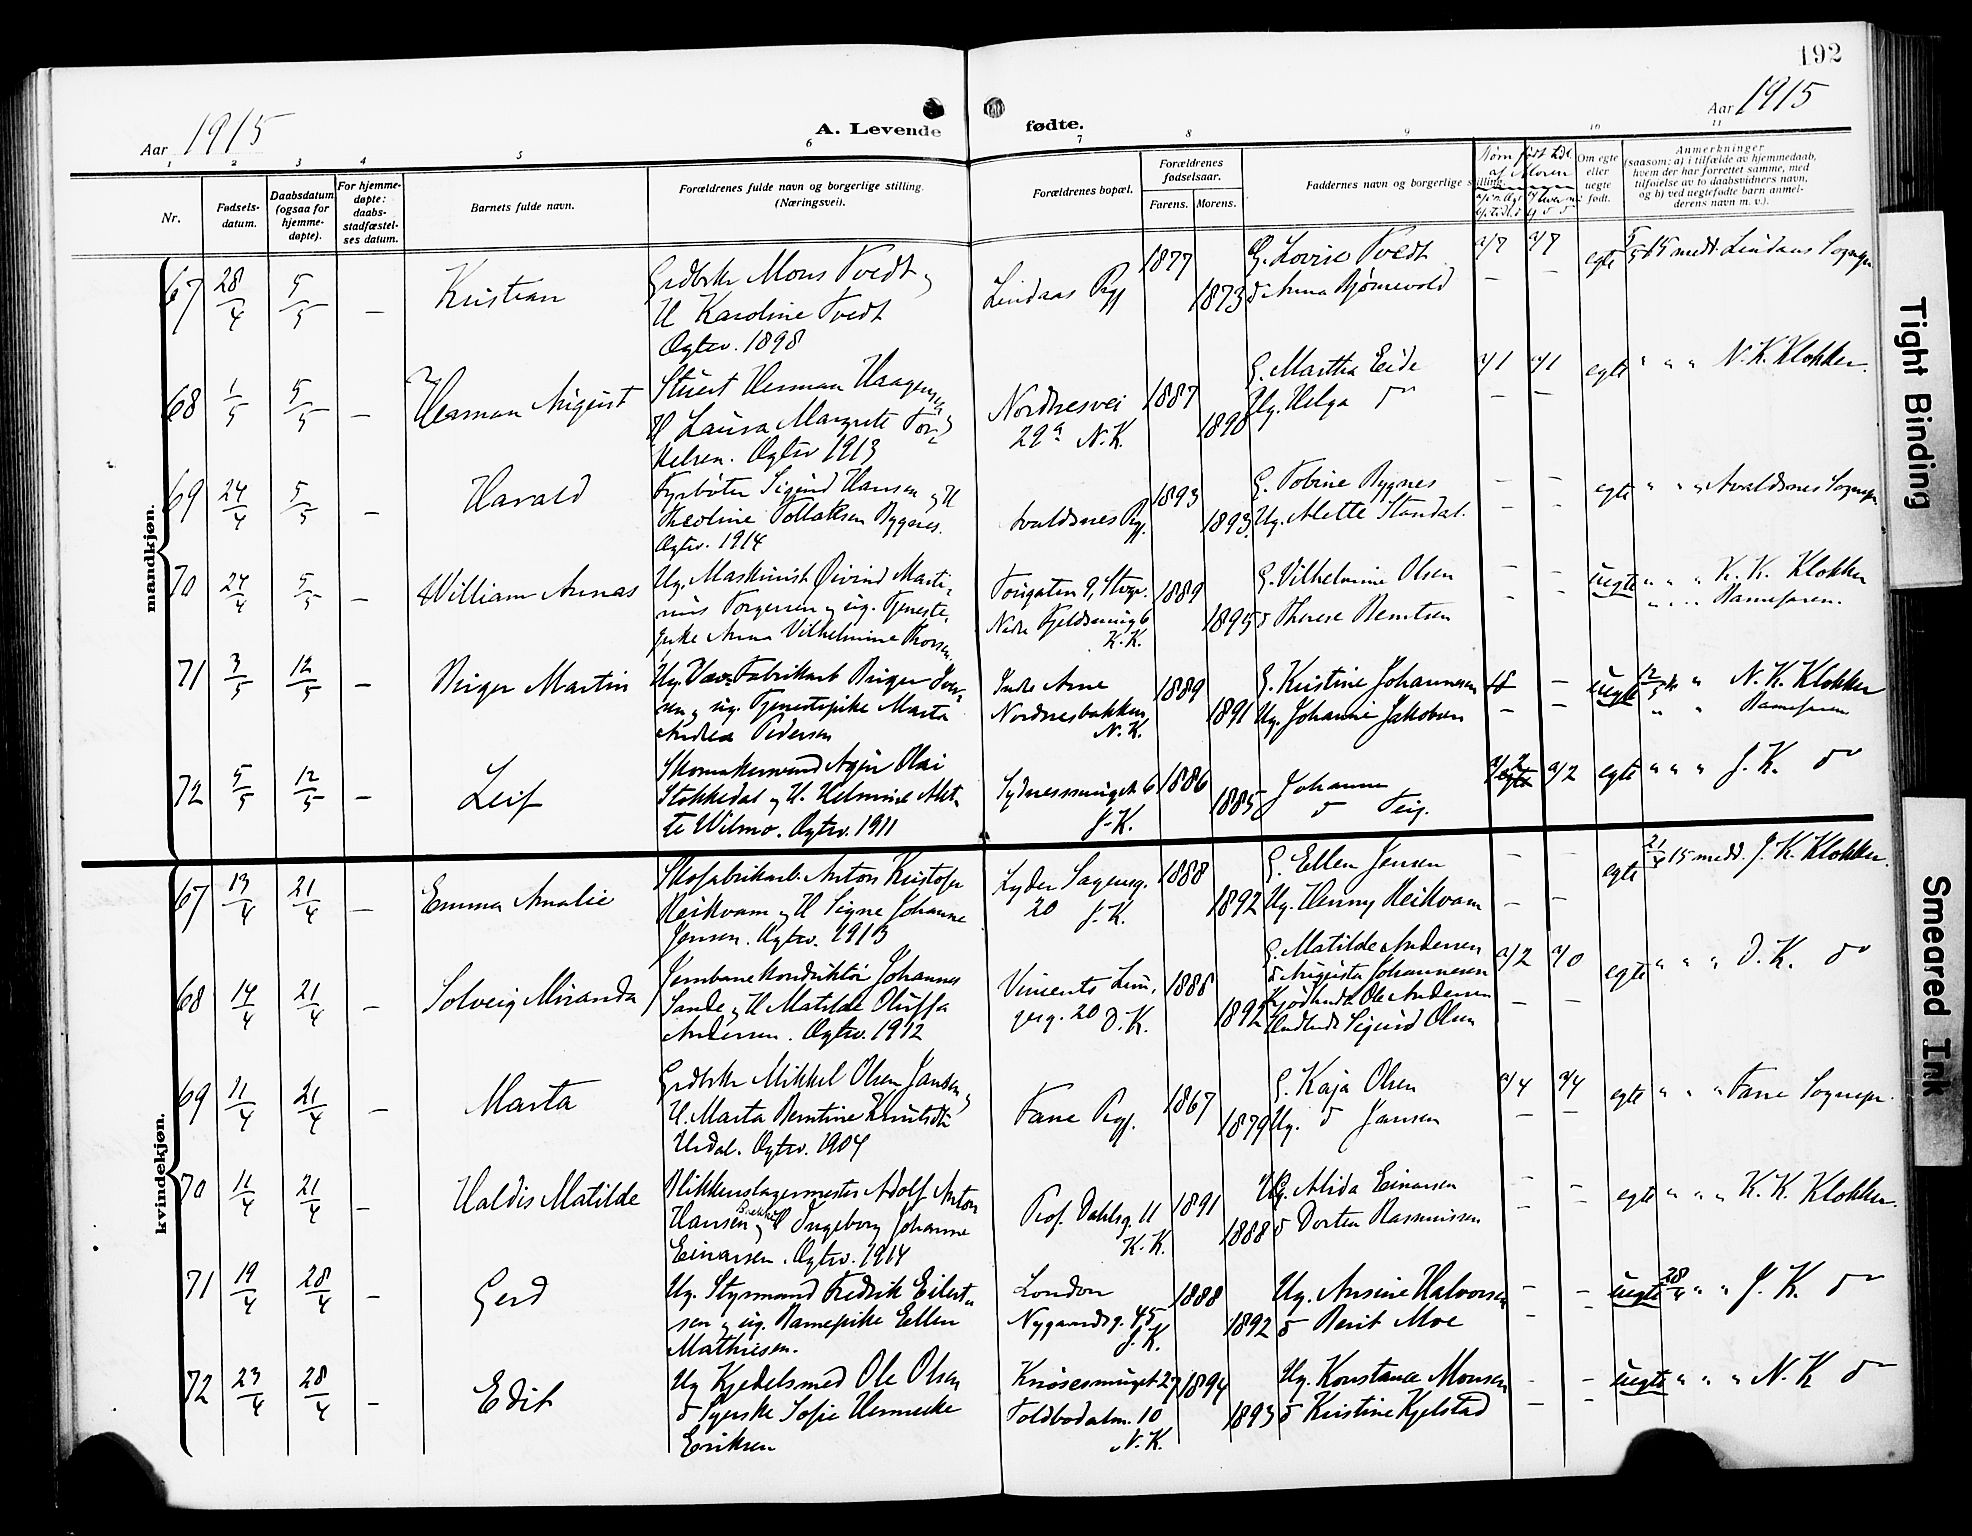 192
Aar 1915
A. Levende fødte.
Aar 1915
1 2 3 4 5 6 7 8 9 10 11
Nr.
Fødsels-
datum.
Daabsdatum
(ogsaa for
hjemme-
døpte).
For hjemme-
døpte:
daabs-
stadfæstel-
ses datum.
Barnets fulde navn.
Forældrenes fulde navn og borgerlige stilling.
(Næringsvei).
Forældrenes bopæl.
Forældrenes
fødselsaar.
Farens. Morens.
Faddernes navn og borgerlige stilling.
Børn født tidl.
af Moren
Om egte
eller
uegte
født.
Anmerkninger
(saasom: a) i tilfælde av hjemmedaab,
hvem der har forrettet samme, med
tilføielse av to daabsvidners navn,
og b) ved uegtefødte barn anmel-
derens navn m. v.).
mandkjøn.
67 28/4 5/5 — Kristian
Grdbrk Mons Tvedt og
H Karoline Tvedt
Ægtev. 1898
Lindaas Pgj
1877 1873
G. Lovise Tvedt
do Anna Bjørnevold
a/7 a/7
— —
egte
5/5 15 medt. Lindaas Sognepr
68 1/5 5/5 — Herman August
Stuert Herman Haagensen
H Laura Margrete Tor-
kelsen. Ægtev 1913
Nordnesvei
29a N.K.
1887 1890
G. Martha Eide
Ug. Helga do
a/1 a/1
— —
egte
" " " N. K. Klokker.
69 24/4 5/5 — Harald
Fyrbøter Sigurd Hansen og H
Theoline Tollaksen Bygnes.
Ægtev. 1914
Avaldsnes Pgj.
1893 1893
G. Tobine Bygnes
Ug. Alette Standal.
— —
— —
egte
" " " Avaldsnes Sognepr
70 24/4 5/5 — William Arenas
Ug. Maskinist Øivind Marti-
nius Torgersen og ug. Tjeneste-
pike Anna Vilhelmine Thorsen
Torvgaten 9, Stvgr.
Nedre Fjeldsmug 6
K.K.
1889 1895
G. Vilhelmine Olsen
do Therese Berntsen
— —
— —
uegte
" " " K. K. Klokker
" " " Barnefaren.
71 3/5 12/5 — Birger Martin
Ug. Væv. Fabrikarb Birger Iver-
sen og ug. Tjenestepike Marta
Andrea Pedersen
Indre Arne
Nordnesbakken
N.K.
1889 1891
G. Kristine Johannesen
Ug. Johanne Jakobsen
—
— —
uegte
12/5 " " N. K. Klokker
" " Barnefaren
72 5/5 12/5 — Leif
Skomakersvend Olai
Stokkedal og H. Helmine Alet-
te Wilmo. Ægtev. 1911
Sydnessmuget 6
J.K.
1886 1885
Johanne
do Teig.
a/2 a/2
egte
" " " J. K. do
kvindekjøn.
67 13/4 21/4 — Emma Amalie
Skofabrikarb. Anton Kristofer
Reikvam og H Signe Johanne
Jensen. Ægtev. 1913
Lyder Sagensg.
20 J.K.
1888 1892
G. Ellen Jensen
Ug. Henny Reikvam
— —
— —
egte
21/4 15 medd. J. K. Klokker.
68 14/4 21/4 — Solveig Miranda
Jernbanekonduktør Johannes
Sande og H Matilde Oluffa
Andersen. Ægtev. 1912
Vincents Lun-
gesg. 20 D.K.
1888 1892
G. Matilde Andersen
do Augusta Johannesen
Ole Andersen
Sigurd Olsen
a/2 a/0
— —
egte
" " " D. K. do
69 11/4 21/4 — Marta
Grdbrk Mikkel Olsen Jansen og
H. Marta Berntine Knutsdtr
Urdal. Ægtev. 1904
Fane Pgj.
1867 1879
G. Kaja Olsen
Ug. do Jansen
a/4 a/4
— —
egte
" " " Fane Sognepr.
70 11/4 21/4 — Haldis Matilde
Blikkenslagermester Adolf Anton
Hansen Brekke og H Ingeborg Johanne
Einarsen. Ægtev. 1914
Prof. Dahlsg. 11
K.K.
1891 1888
Ug. Alida Einarsen
do Dorten Rasmussen
— —
— —
egte
" " " K. K. Klokker.
71 19/4 28/4 — Gerd
Ug. Styrmand Fredrik Eilert-
sen og ug. Barnepike Ellen
Mathiesen.
London
Nygaardsg. 45
J.K.
1888 1892
Ug. Ansine Halvorsen
do Berit Moe
— —
— —
uegte
28/4 " " J. K. do
72 23/4 28/4 — Edit
Ug Kjedelsmed Ole Olsen
do Syerske Sofie Hermecke
Eriksen
Knøsesmuget 27
Toldbodalm. 10
N.K.
1894 1893
Ug. Konstance Monsen
do Kristine Kjelstad
— —
— —
uegte
" " " N. K. do
Tight Binding
Smeared Ink